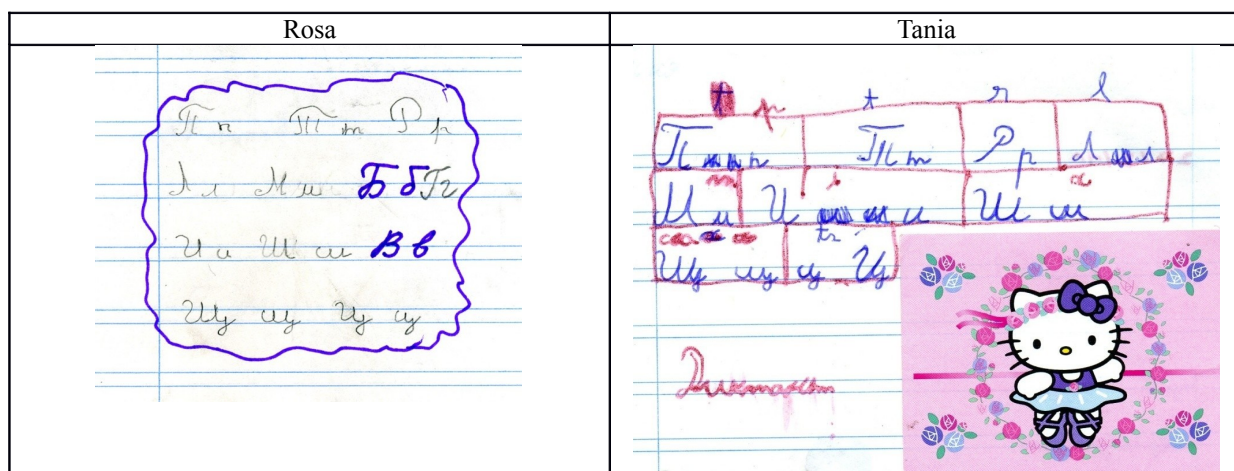 Rosa
Tania
П п Т т Р р
Л л М м Б б Г г
И и Ш ш В в
Щ щ Ц ц
t р t r l
П п Т т Р р Л л
М м И и Ш ш
Щ щ ц Ц